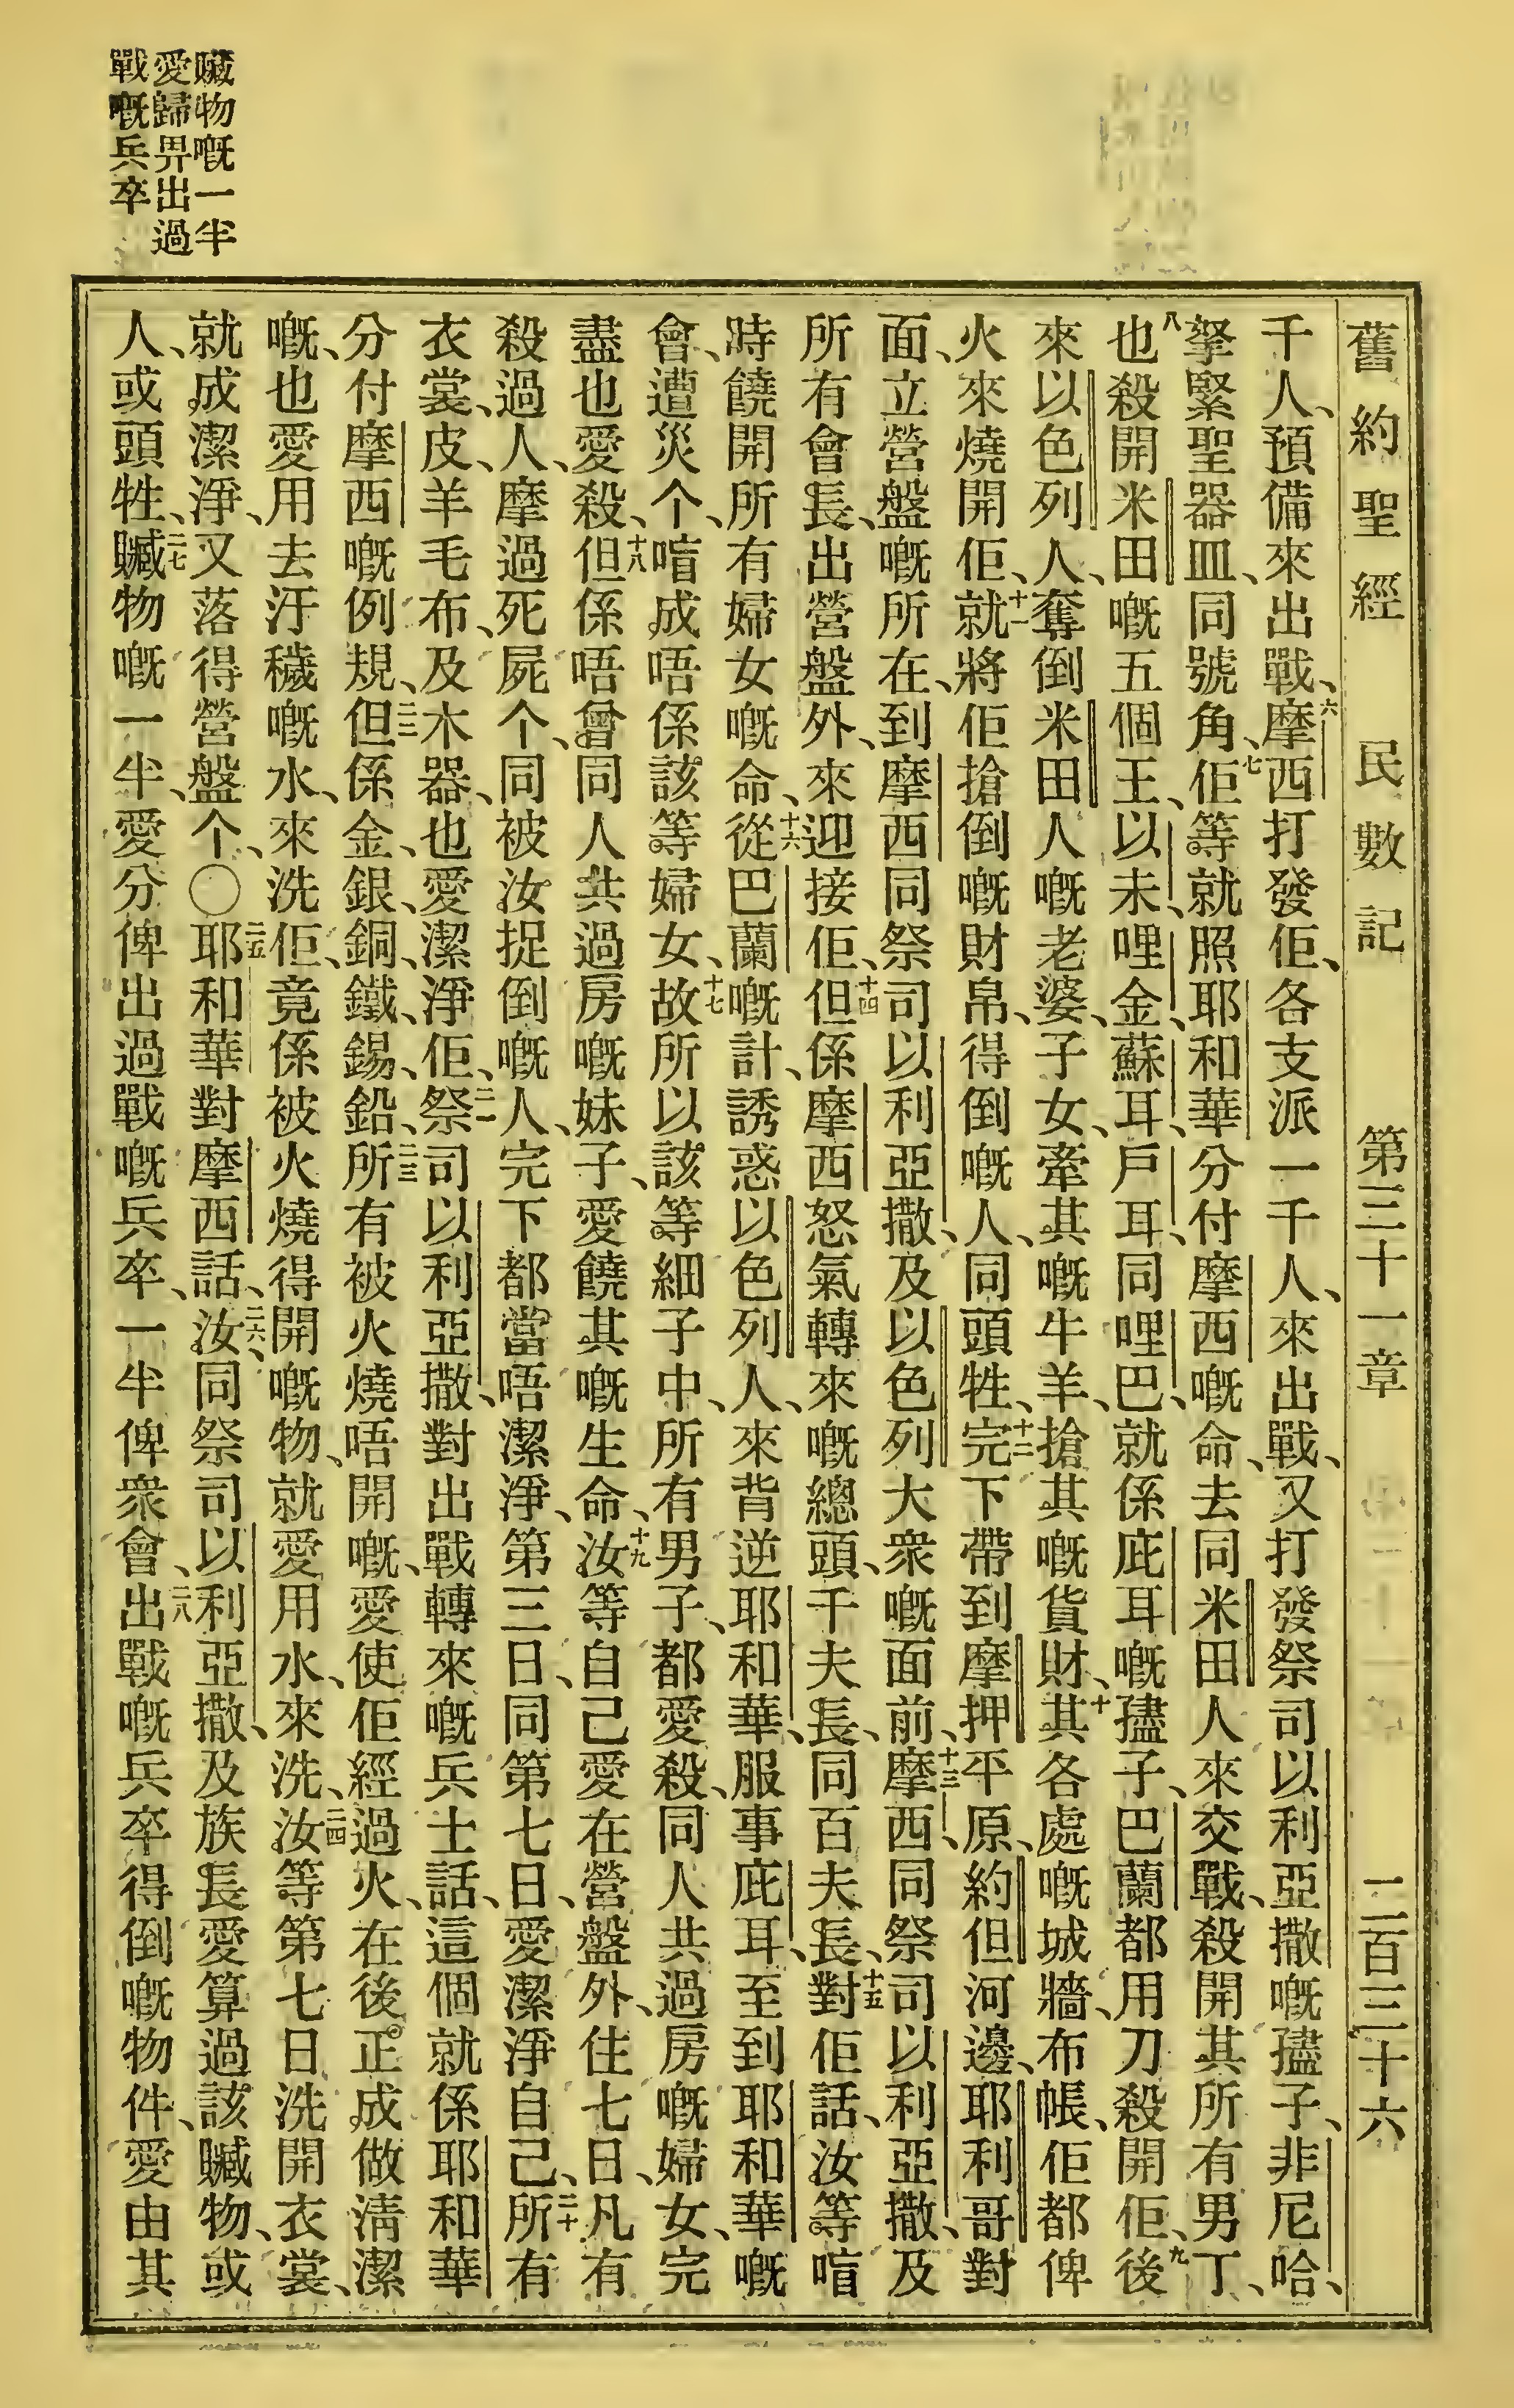 舊約聖經 民數記 第三十一章 二百三十六
千人、預備來出戰、六摩西打發佢、各支派一千人、來出戰、又打發祭司以利亞撒嘅孻子、非尼哈、
拏緊聖器皿、同號角、七佢等就照耶和華分付摩西嘅命、去同米田人來交戰、殺開其所有男丁、
八也殺開米田嘅五個王、以未、哩金、蘇耳、戶耳、同哩巴、就係庇耳嘅孻子、巴蘭都用刀殺開佢、九後
來以色列人、奪倒米田人嘅老婆、子女、牽其嘅牛羊、搶其嘅貨財、十其各處嘅城牆、布帳、佢都俾
火來燒開佢、十一就將佢搶倒嘅財帛、得倒嘅人、同頭牲、十二完下帶到摩押平原、約但河邊、耶利哥對
面、立營盤嘅所在、到摩西同祭司以利亞撒、及以色列大衆嘅面前、十三摩西、同祭司以利亞撒、及
所有會長、出營盤外、來迎接佢、十四但係摩西怒氣轉來嘅總頭、千夫長、同百夫長、十五對佢話、汝等喑
時饒開所有婦女嘅命、十六從巴蘭嘅計、誘惑以色列人、來背逆耶和華、服事庇耳、至到耶和華嘅
會、遭災个、喑成唔係該等婦女、十七故所以該等細子中、所有男子、都愛殺、同人共過房嘅婦女、完
盡也愛殺、十八但係唔曾同人共過房嘅妹子、愛饒其嘅生命、十九汝等自己愛在營盤外、住七日、凡有
殺過人、摩過死屍个、同被汝捉倒嘅人、完下都當唔潔淨、第三日、同第七日、愛潔淨自己、二十所有
衣裳、皮、羊毛布、及木器、也愛潔淨佢、二一祭司以利亞撒、對出戰轉來嘅兵士話、這個就係耶和華
分付摩西嘅例規、二二但係金、銀、銅、鐵、錫、鉛、二三所有被火燒唔開嘅、愛使佢經過火、在後正成做淸潔
嘅、也愛用去汙穢嘅水、來洗佢、竟係被火燒得開嘅物、就愛用水來洗、二四汝等第七日洗開衣裳、
就成潔淨、又落得營盤个、〇二五耶和華對摩西話、二六汝同祭司以利亞撒、及族長愛算過該贓物、或
人、或頭牲、二七贓物嘅一半、愛分俾出過戰嘅兵卒、一半俾衆會、二八出戰嘅兵卒得倒嘅物件、愛由其
贓物嘅一半
愛歸畀出過
戰嘅兵卒